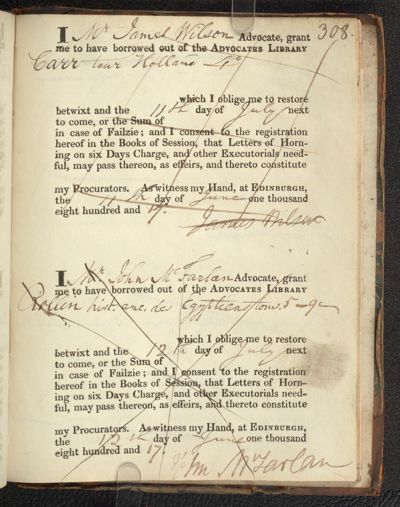 308.
I Mr James Wilson Advocate, grant
me to have borrowed out of the ADVOCATES LIBRARY
Carr tour Holland 4o
which I oblige me to restore
betwixt and the 11th day of July next
to come, or the Sum of
in case of Failzie; and I consent to the registration
hereof in the Books of Session, that Letters of Horn-
ing on six Days Charge, and other Executorials need-
ful, may pass thereon, as effeirs, and thereto constitute
my Procurators. As witness my Hand, at EDINBURGH,
the 11th day of June one thousand
eight hundred and 17.
James Wilson
I Mr John McFarlan Advocate, grant
me to have borrowed out of the ADVOCATES LIBRARY
Rollin hist. anc. des Egyptiens tom. 5
which I oblige me to restore
betwixt and the 12th day of July next
to come, or the Sum of
in case of Failzie; and I consent to the registration
hereof in the Books of Session, that Letters of Horn-
ing on six Days Charge, and other Executorials need-
ful, may pass thereon, as effeirs, and thereto constitute
my Procurators. As witness my Hand, at EDINBURGH,
the 12th day of June one thousand
eight hundred and 17.
Jn McFarlan